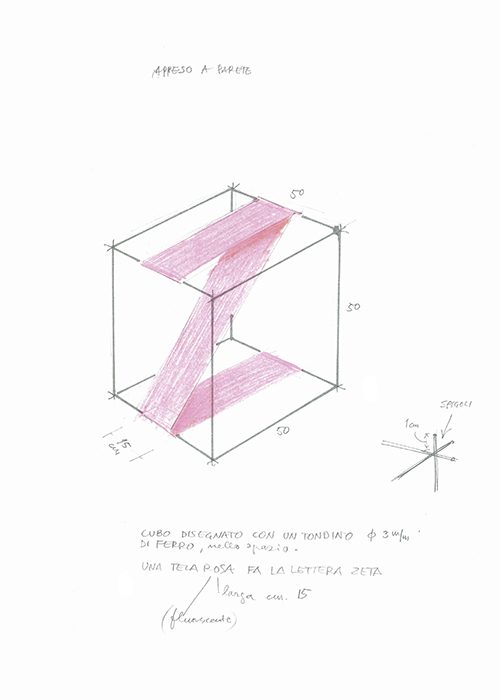 APPESO A PARETE
50
50
50
15
cm
SPIGOLI
1cm
CUBO DISEGNATO CON UN TONDINO ϕ 3 m/m
DI FERRO, nello spazio.
UNA TELA ROSA FA LA LETTERA ZETA
larga cm. 15
(fluorescente)